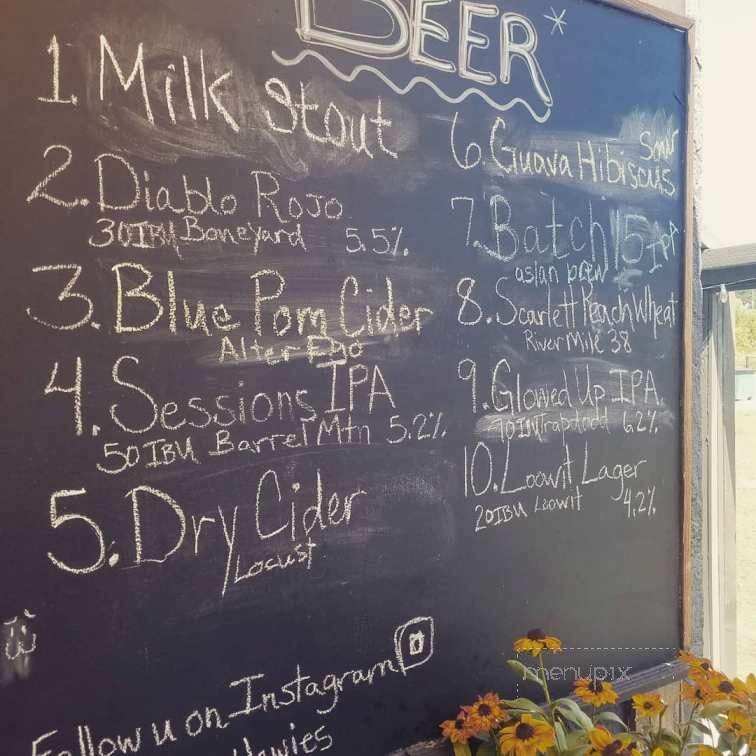 BEER*
1. Milk Stout
2. Diablo Rojo
30IBU Boneyard 5.5%
3. Blue Pom Cider
Alter Ego
4. Sessions IPA
50IBU Barrel Mtn 5.2%
5. Dry Cider
Locust
6. Guava Hibiscus
Sour
7. Batch 15 IPA
asian brew
8. Scarlett Peach Wheat
River Mile 38
9. Glowed Up IPA
Trapdoor 6.2%
10. Loowit Lager
20IBU Loowit 4.2%
Follow u on Instagram
menupix